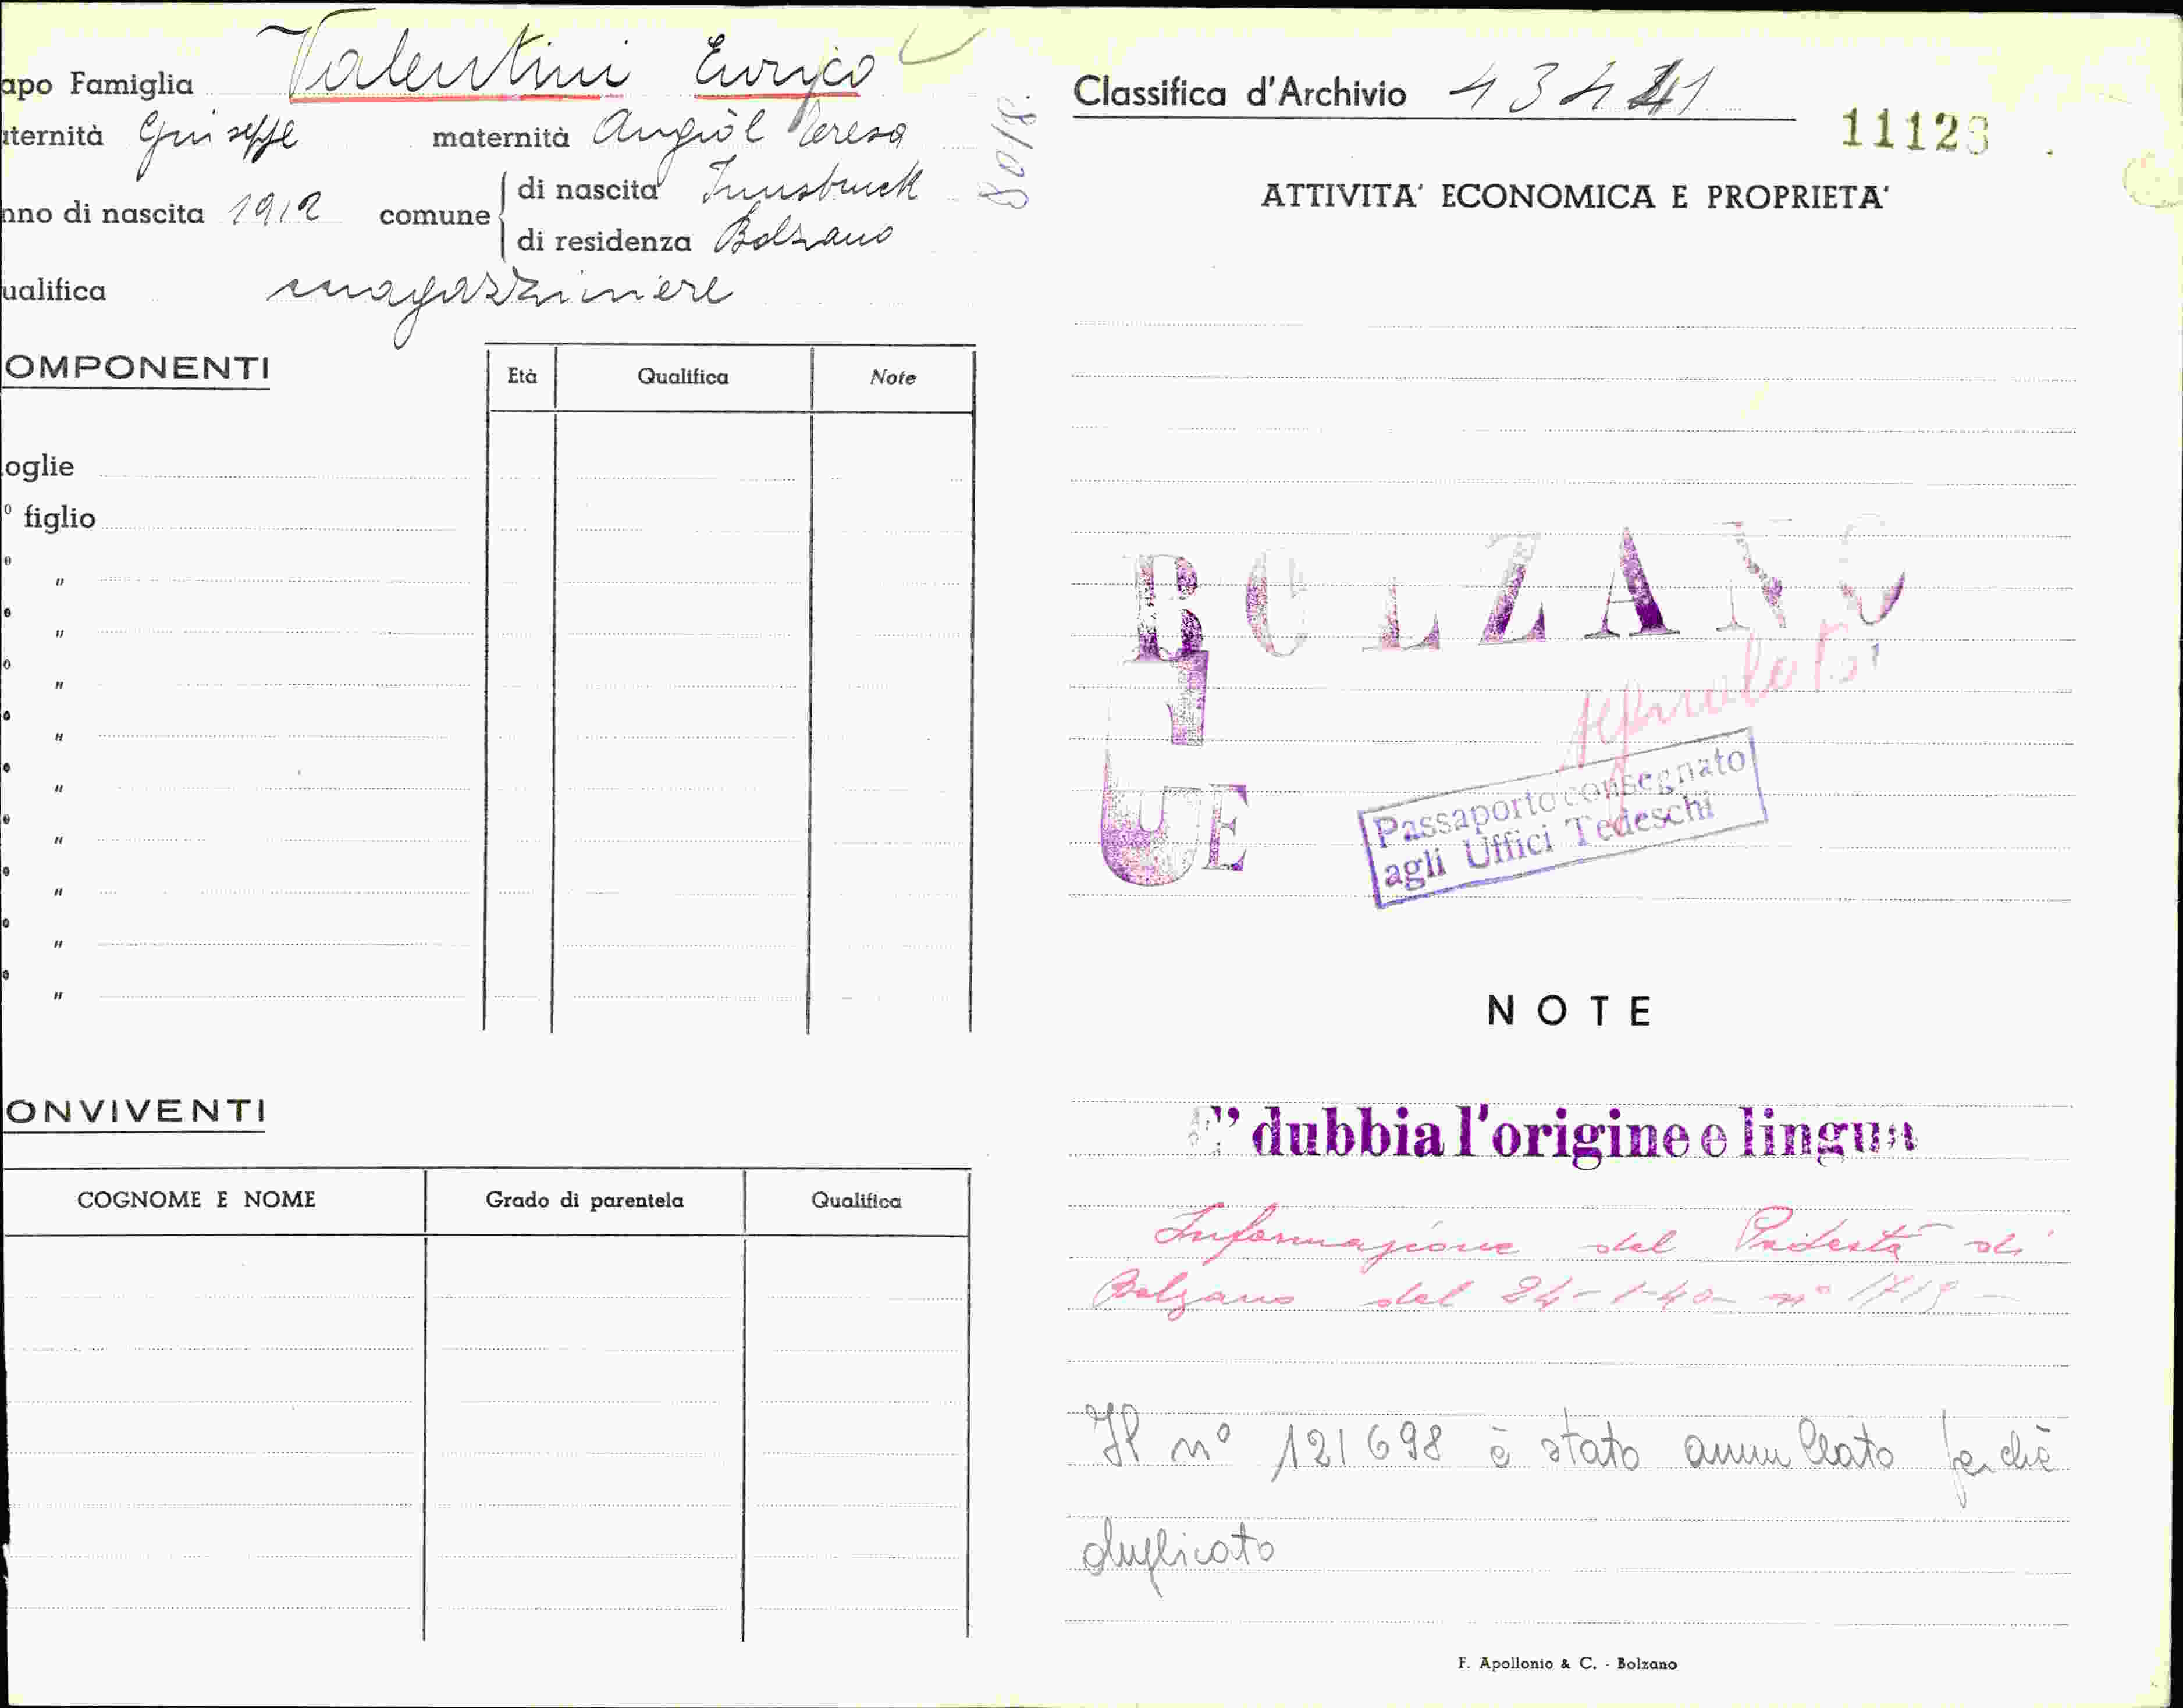 apo Famiglia Valentini Enrico
aternità Giuseppe maternità Angiòl Teresa
nno di nascita 1912 comune di nascita Innsbruck
di residenza Bolzano
ualifica magazziniere
80/8
OMPONENTI Età Qualifica Note
oglie
º figlio
"
"
"
"
"
"
"
"
"
ONVIVENTI
COGNOME E NOME Grado di parentela Qualifica
Classifica d'Archivio
11123
ATTIVITA' ECONOMICA E PROPRIETA'
BOLZANO
E
Passaporto consegnato
agli Uffici Tedeschi
NOTE
E' dubbia l'origine e lingua
Informazione del Podestà di
Bolzano del 24-1-40 nº 1719 -
Il nº 121698 è stato annullato perchè
duplicato
F. Apollonio & C. - Bolzano